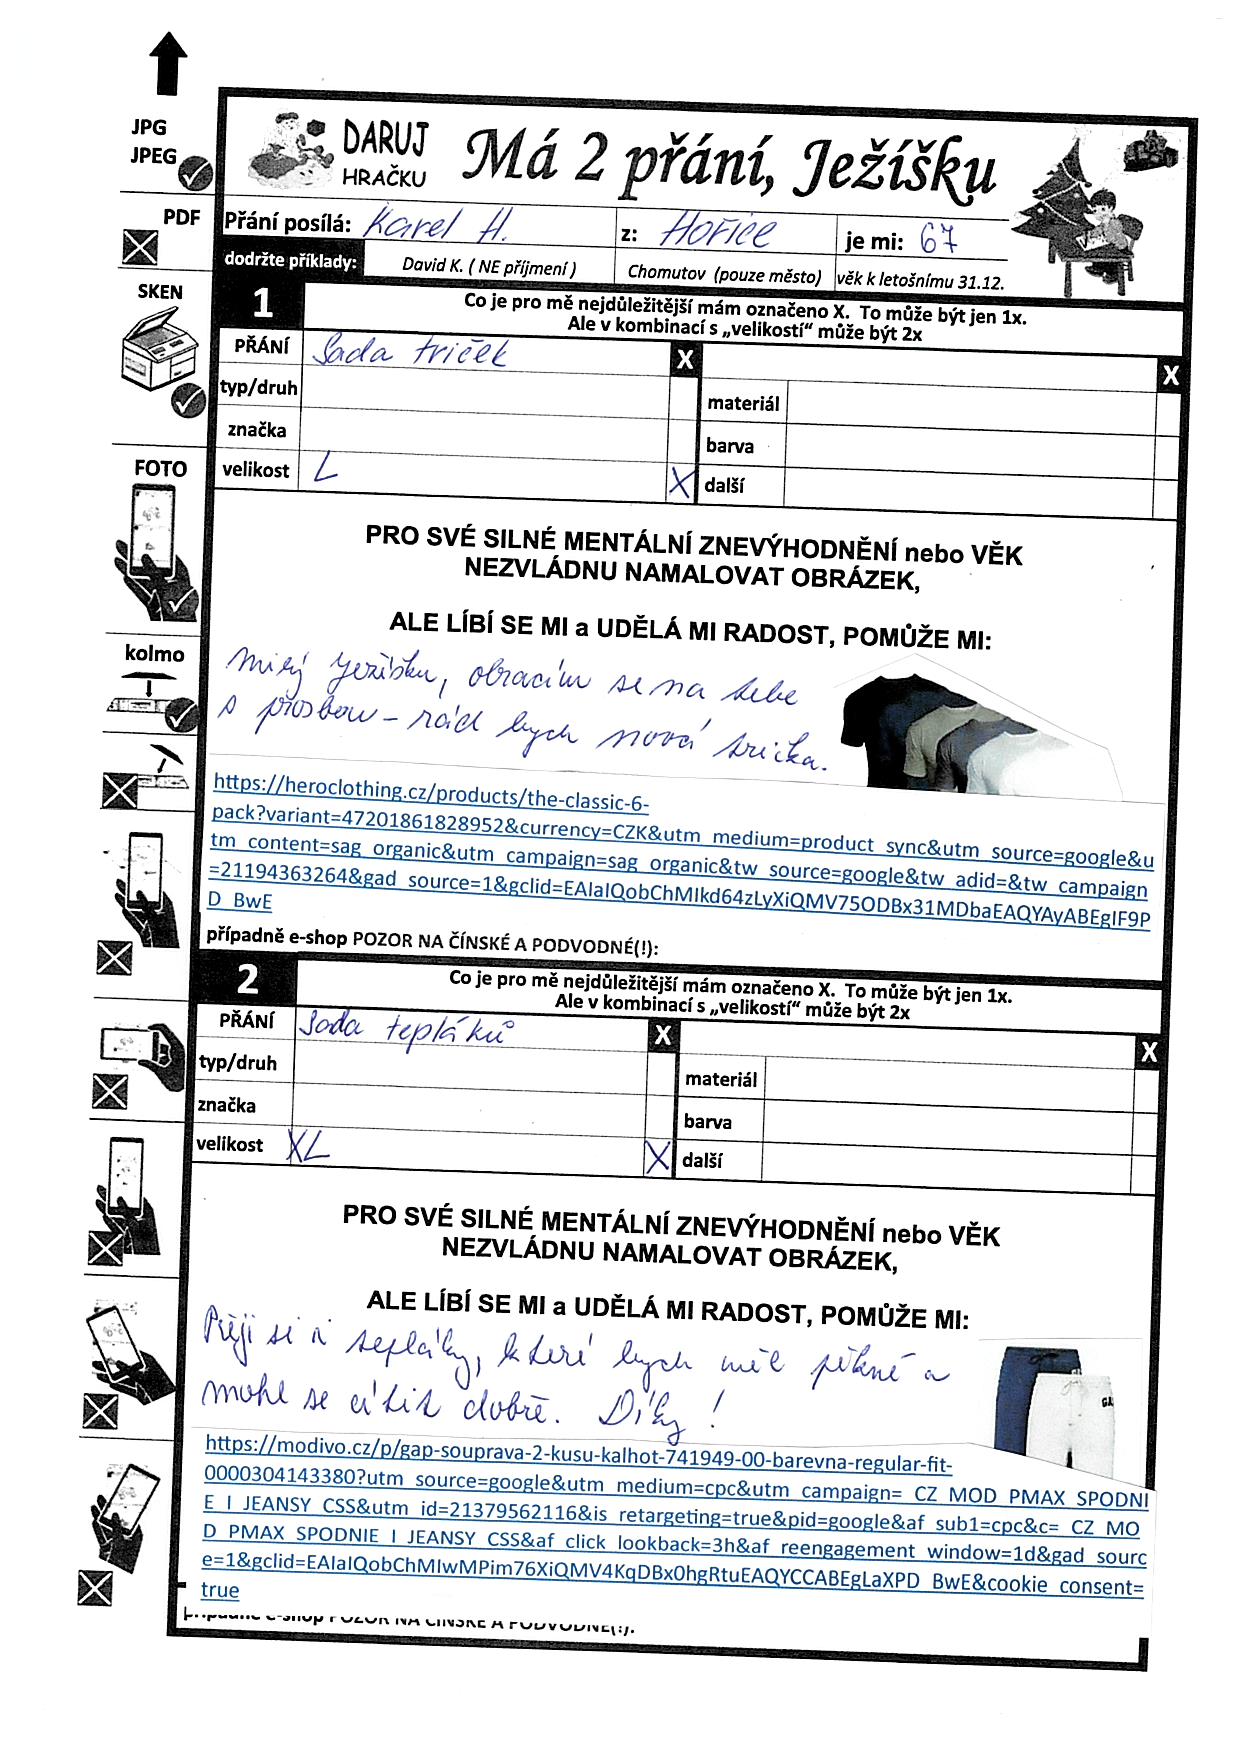 JPG
JPEG
PDF
SKEN
FOTO
kolmo
DARUJ
HRAČKU
Má 2 přání, Ježíšku
Přání posílá: Karel H. z: Hořice je mi: 67
dodržte příklady: David K. ( NE příjmení ) Chomutov (pouze město) věk k letošnímu 31.12.
1 Co je pro mě nejdůležitější mám označeno X. To může být jen 1x.
Ale v kombinací s „velikostí“ může být 2x
PŘÁNÍ Sada triček X X
typ/druh materiál
značka barva
velikost L X další
PRO SVÉ SILNÉ MENTÁLNÍ ZNEVÝHODNĚNÍ nebo VĚK
NEZVLÁDNU NAMALOVAT OBRÁZEK,
ALE LÍBÍ SE MI a UDĚLÁ MI RADOST, POMŮŽE MI:
Milý Ježíšku, obracím se na tebe
s prosbou – rád bych nová trička.
https://heroclothing.cz/products/the-classic-6-
pack?variant=47201861828952&currency=CZK&utm_medium=product_sync&utm_source=google&u
tm_content=sag_organic&utm_campaign=sag_organic&tw_source=google&tw_adid=&tw_campaign
=21194363264&gad_source=1&gclid=EAIaIQobChMIkd64zLyXiQMV75ODBx31MDbaEAQYAyABEgIF9P
D_BwE
případně e-shop POZOR NA ČÍNSKÉ A PODVODNÉ(!):
2 Co je pro mě nejdůležitější mám označeno X. To může být jen 1x.
Ale v kombinací s „velikostí“ může být 2x
PŘÁNÍ Sada tepláků X X
typ/druh materiál
značka barva
velikost XL X další
PRO SVÉ SILNÉ MENTÁLNÍ ZNEVÝHODNĚNÍ nebo VĚK
NEZVLÁDNU NAMALOVAT OBRÁZEK,
ALE LÍBÍ SE MI a UDĚLÁ MI RADOST, POMŮŽE MI:
Přeji si i tepláky, které bych měl pěkné a
mohl se cítit dobře. Díky!
GA
https://modivo.cz/p/gap-souprava-2-kusu-kalhot-741949-00-barevna-regular-fit-
0000304143380?utm_source=google&utm_medium=cpc&utm_campaign=_CZ_MOD_PMAX_SPODNI
E_I_JEANSY_CSS&utm_id=21379562116&is_retargeting=true&pid=google&af_sub1=cpc&c=_CZ_MO
D_PMAX_SPODNIE_I_JEANSY_CSS&af_click_lookback=3h&af_reengagement_window=1d&gad_sourc
e=1&gclid=EAIaIQobChMIwMPim76XiQMV4KqDBx0hgRtuEAQYCCABEgLaXPD_BwE&cookie_consent=
true
případně e-shop POZOR NA ČÍNSKÉ A PODVODNÉ(!):